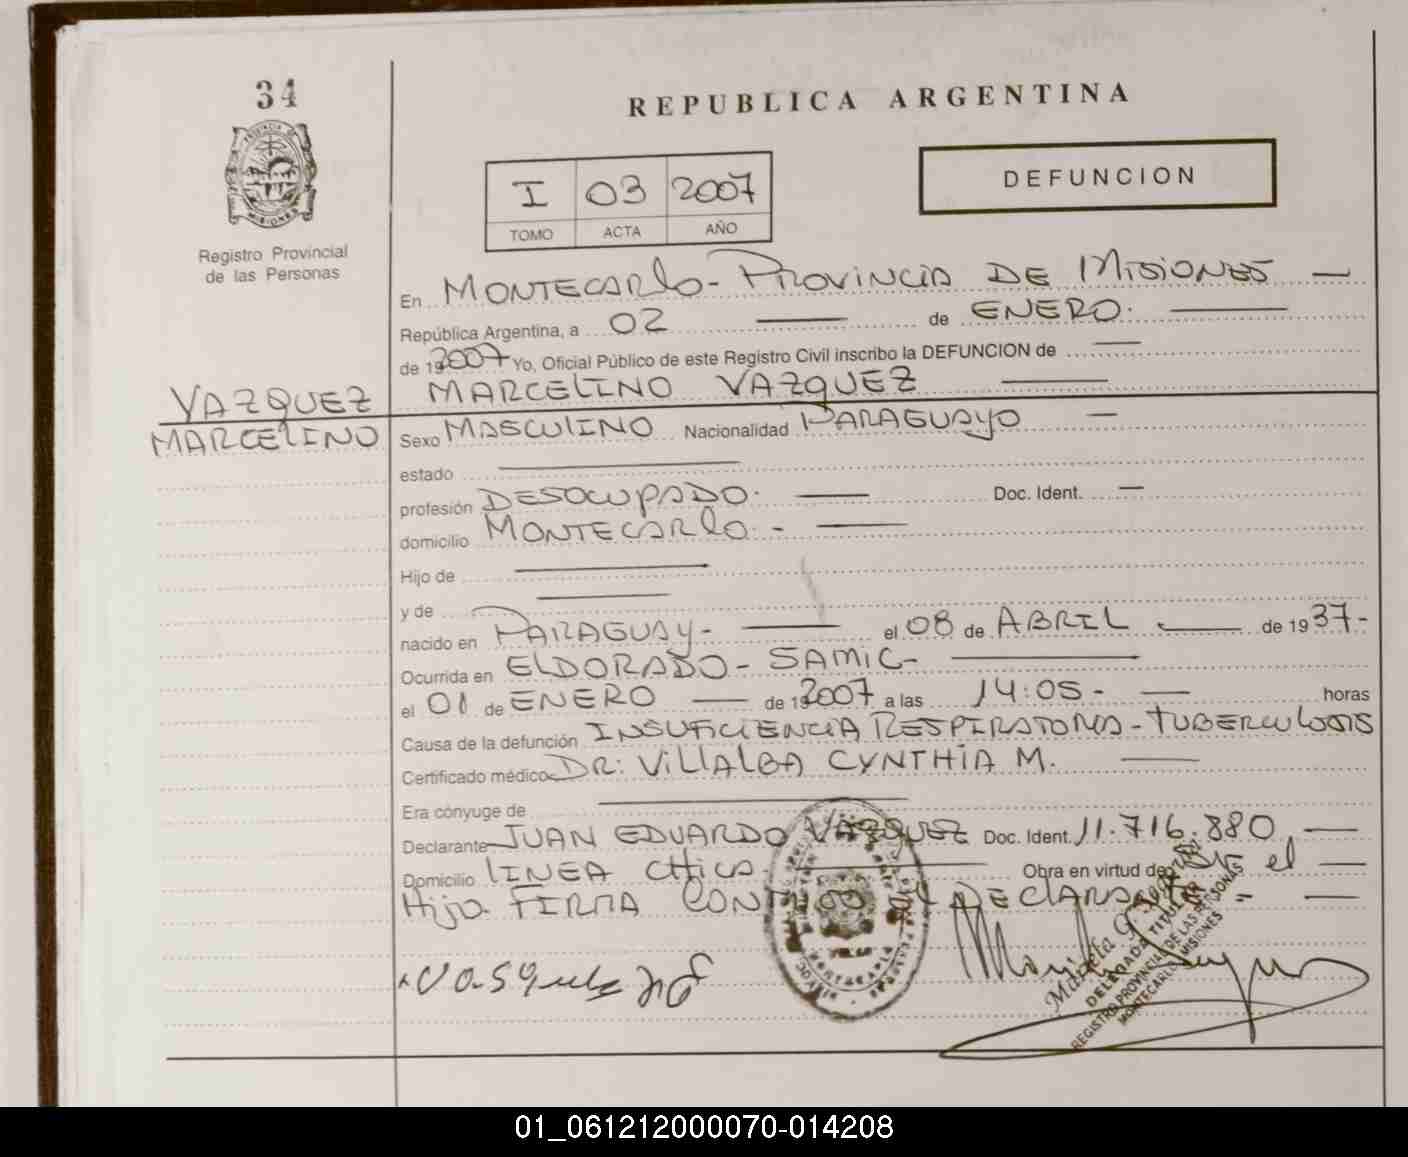 34
REPUBLICA ARGENTINA
PROVINCIA DE
MISIONES
Registro Provincial
de las Personas
I 03 2007
TOMO ACTA AÑO
DEFUNCION
En MONTECARLO - PROVINCIA DE MISIONES —
República Argentina, a 02 — de ENERO. —
de 192007 Yo, Oficial Público de este Registro Civil inscribo la DEFUNCION de —
VAZQUEZ MARCELINO VAZQUEZ —
MARCELINO Sexo MASCULINO Nacionalidad PARAGUAYO —
estado —
profesión DESOCUPADO. — Doc. Ident. —
domicilio MONTECARLO. - —
Hijo de —
y de —
nacido en PARAGUAY- — el 08 de ABRIL — de 1937-
Ocurrida en ELDORADO - SAMIC- —
el 01 de ENERO — de 192007 a las 14:05- — horas
Causa de la defunción INSUFICIENCIA RESPIRATORIA - TUBERCULOSIS
Certificado médico DR: VILLALBA CYNTHIA M. —
Era cónyuge de —
Declarante JUAN EDUARDO VAZQUEZ Doc. Ident. 11.716.880, —
Domicilio LINEA CHICA — Obra en virtud de el —
Hijo. FIRMA CONMIGO DECLARANTE —
DELEGADA TITULAR
REGISTRO PROVINCIAL DE LAS PERSONAS
MONTECARLO MISIONES
01_061212000070-014208